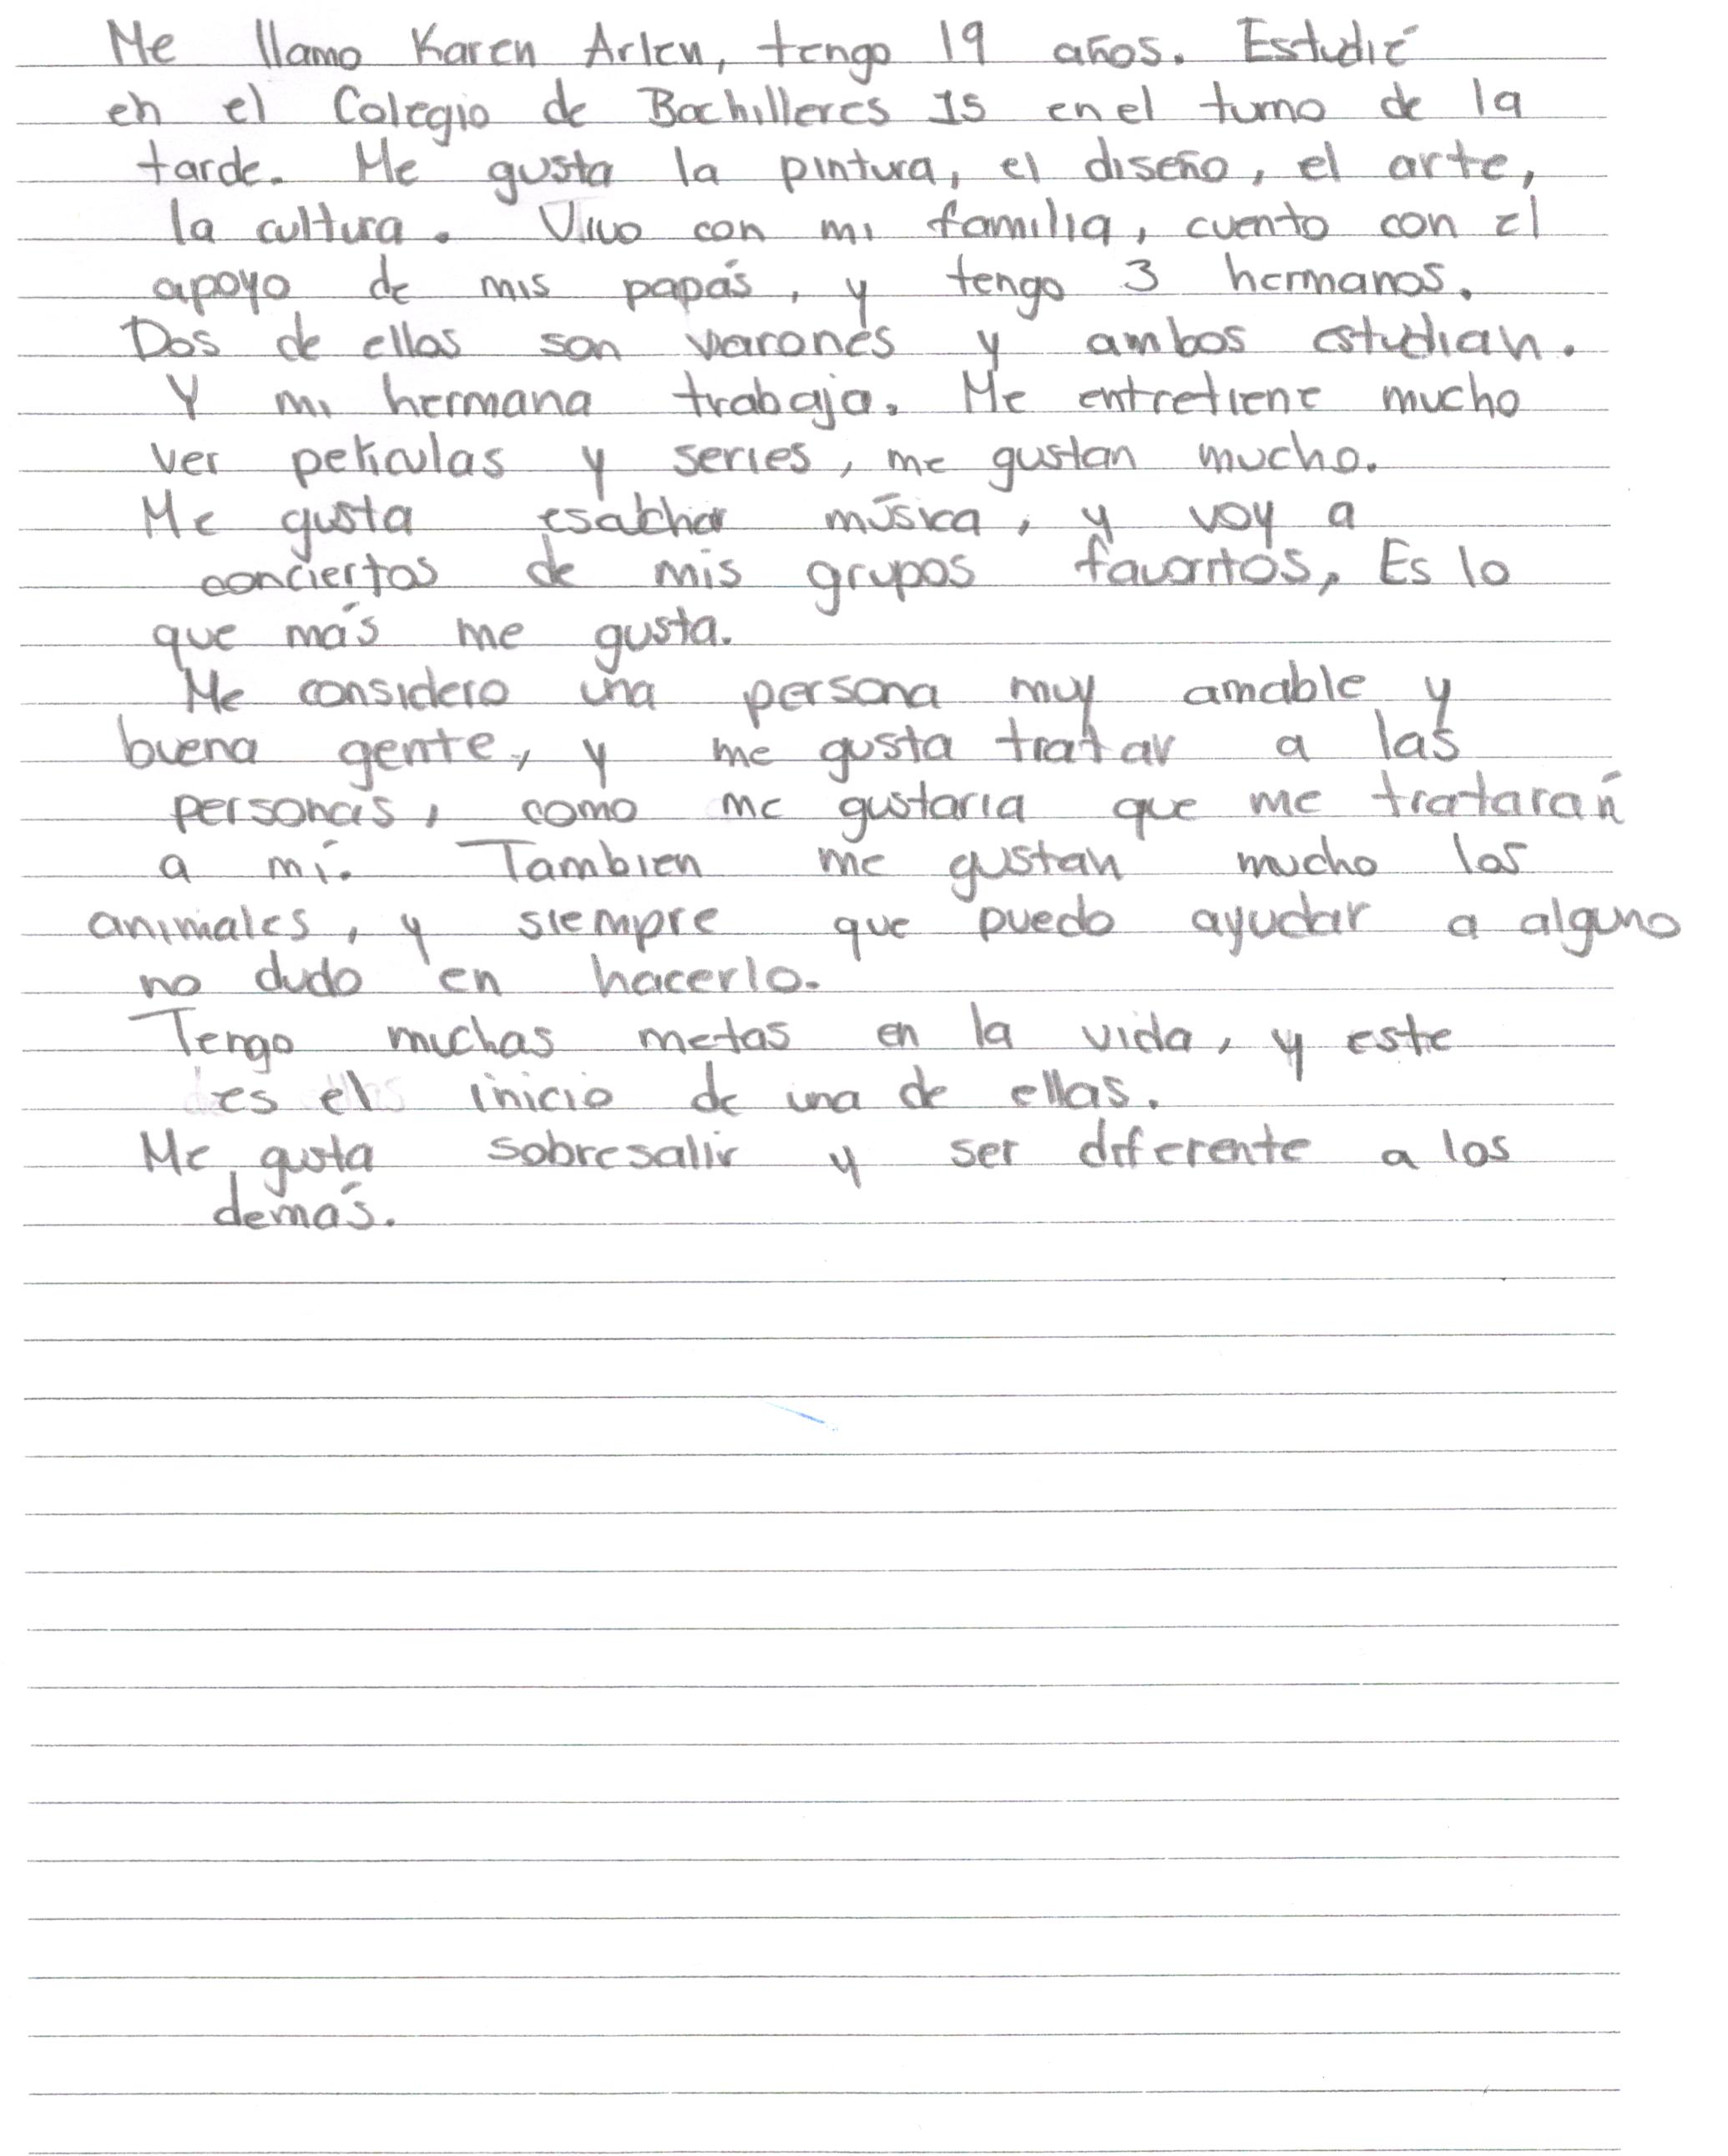 Me llamo Karen Arlen, tengo 19 años. Estudié
en el Colegio de Bachilleres 15 en el turno de la
tarde. Me gusta la pintura, el diseño, el arte,
la cultura. Vivo con mi familia, cuento con el
apoyo de mis papás, y tengo 3 hermanos.
Dos de ellos son varones y ambos estudian.
Y mi hermana trabaja. Me entretiene mucho
ver películas y series, me gustan mucho.
Me gusta escuchar música, y voy a
conciertos de mis grupos favoritos, Es lo
que más me gusta.
Me considero una persona muy amable y
buena gente, y me gusta tratar a las
personas, como me gustaria que me tratarán
a mí. Tambien me gustan mucho los
animales, y siempre que puedo ayudar a alguno
no dudo en hacerlo.
Tengo muchas metas en la vida, y este
es el inicio de una de ellas.
Me gusta sobresalir y ser diferente a los
demás.